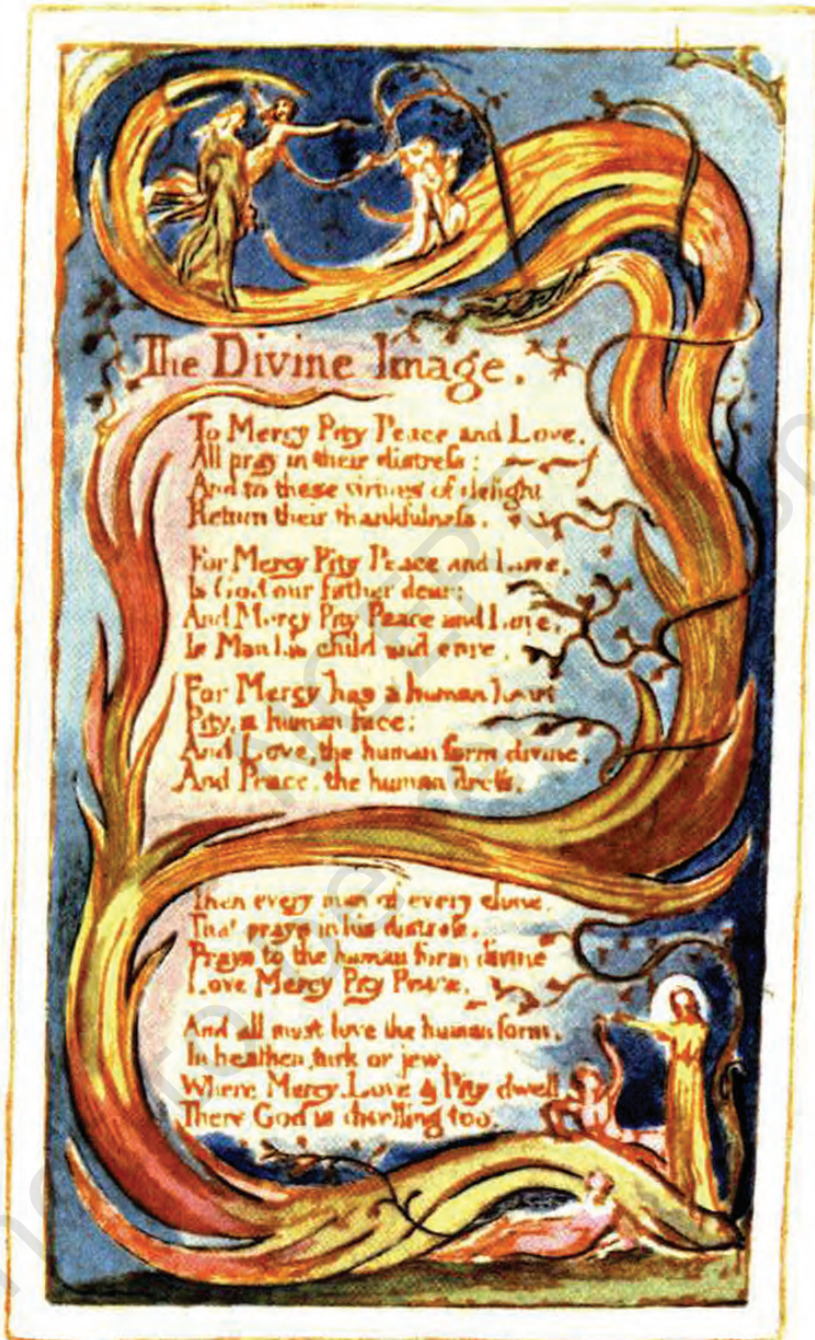 The Divine Image.
To Mercy Pity Peace and Love,
All pray in their distress:
And to these virtues of delight
Return their thankfulness.
For Mercy Pity Peace and Love,
Is God our father dear:
And Mercy Pity Peace and Love,
Is Man his child and care.
For Mercy has a human heart
Pity, a human face:
And Love, the human form divine,
And Peace, the human dress.
Then every man of every clime,
That prays in his distress,
Prays to the human form divine
Love Mercy Pity Peace.
And all must love the human form,
In heathen, turk or jew.
Where Mercy, Love & Pity dwell,
There God is dwelling too.